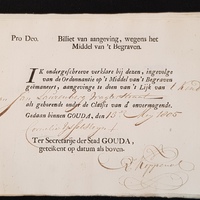 Pro Deo. Billiet van aangeving, wegens het
Middel van 't Begraven.
IK ondergeschreven verklare bij dezen, ingevolge
van de Ordonnantie op 't Middel van 't Begraven
geëmaneert, aangevinge te doen van 't Lijk van
als gehorende onder de Classe van d' onvermogende.
Gedaan binnen GOUDA, den 15 May 1805
Ter Secretarije der Stad GOUDA,
geteikent op datum als boven.